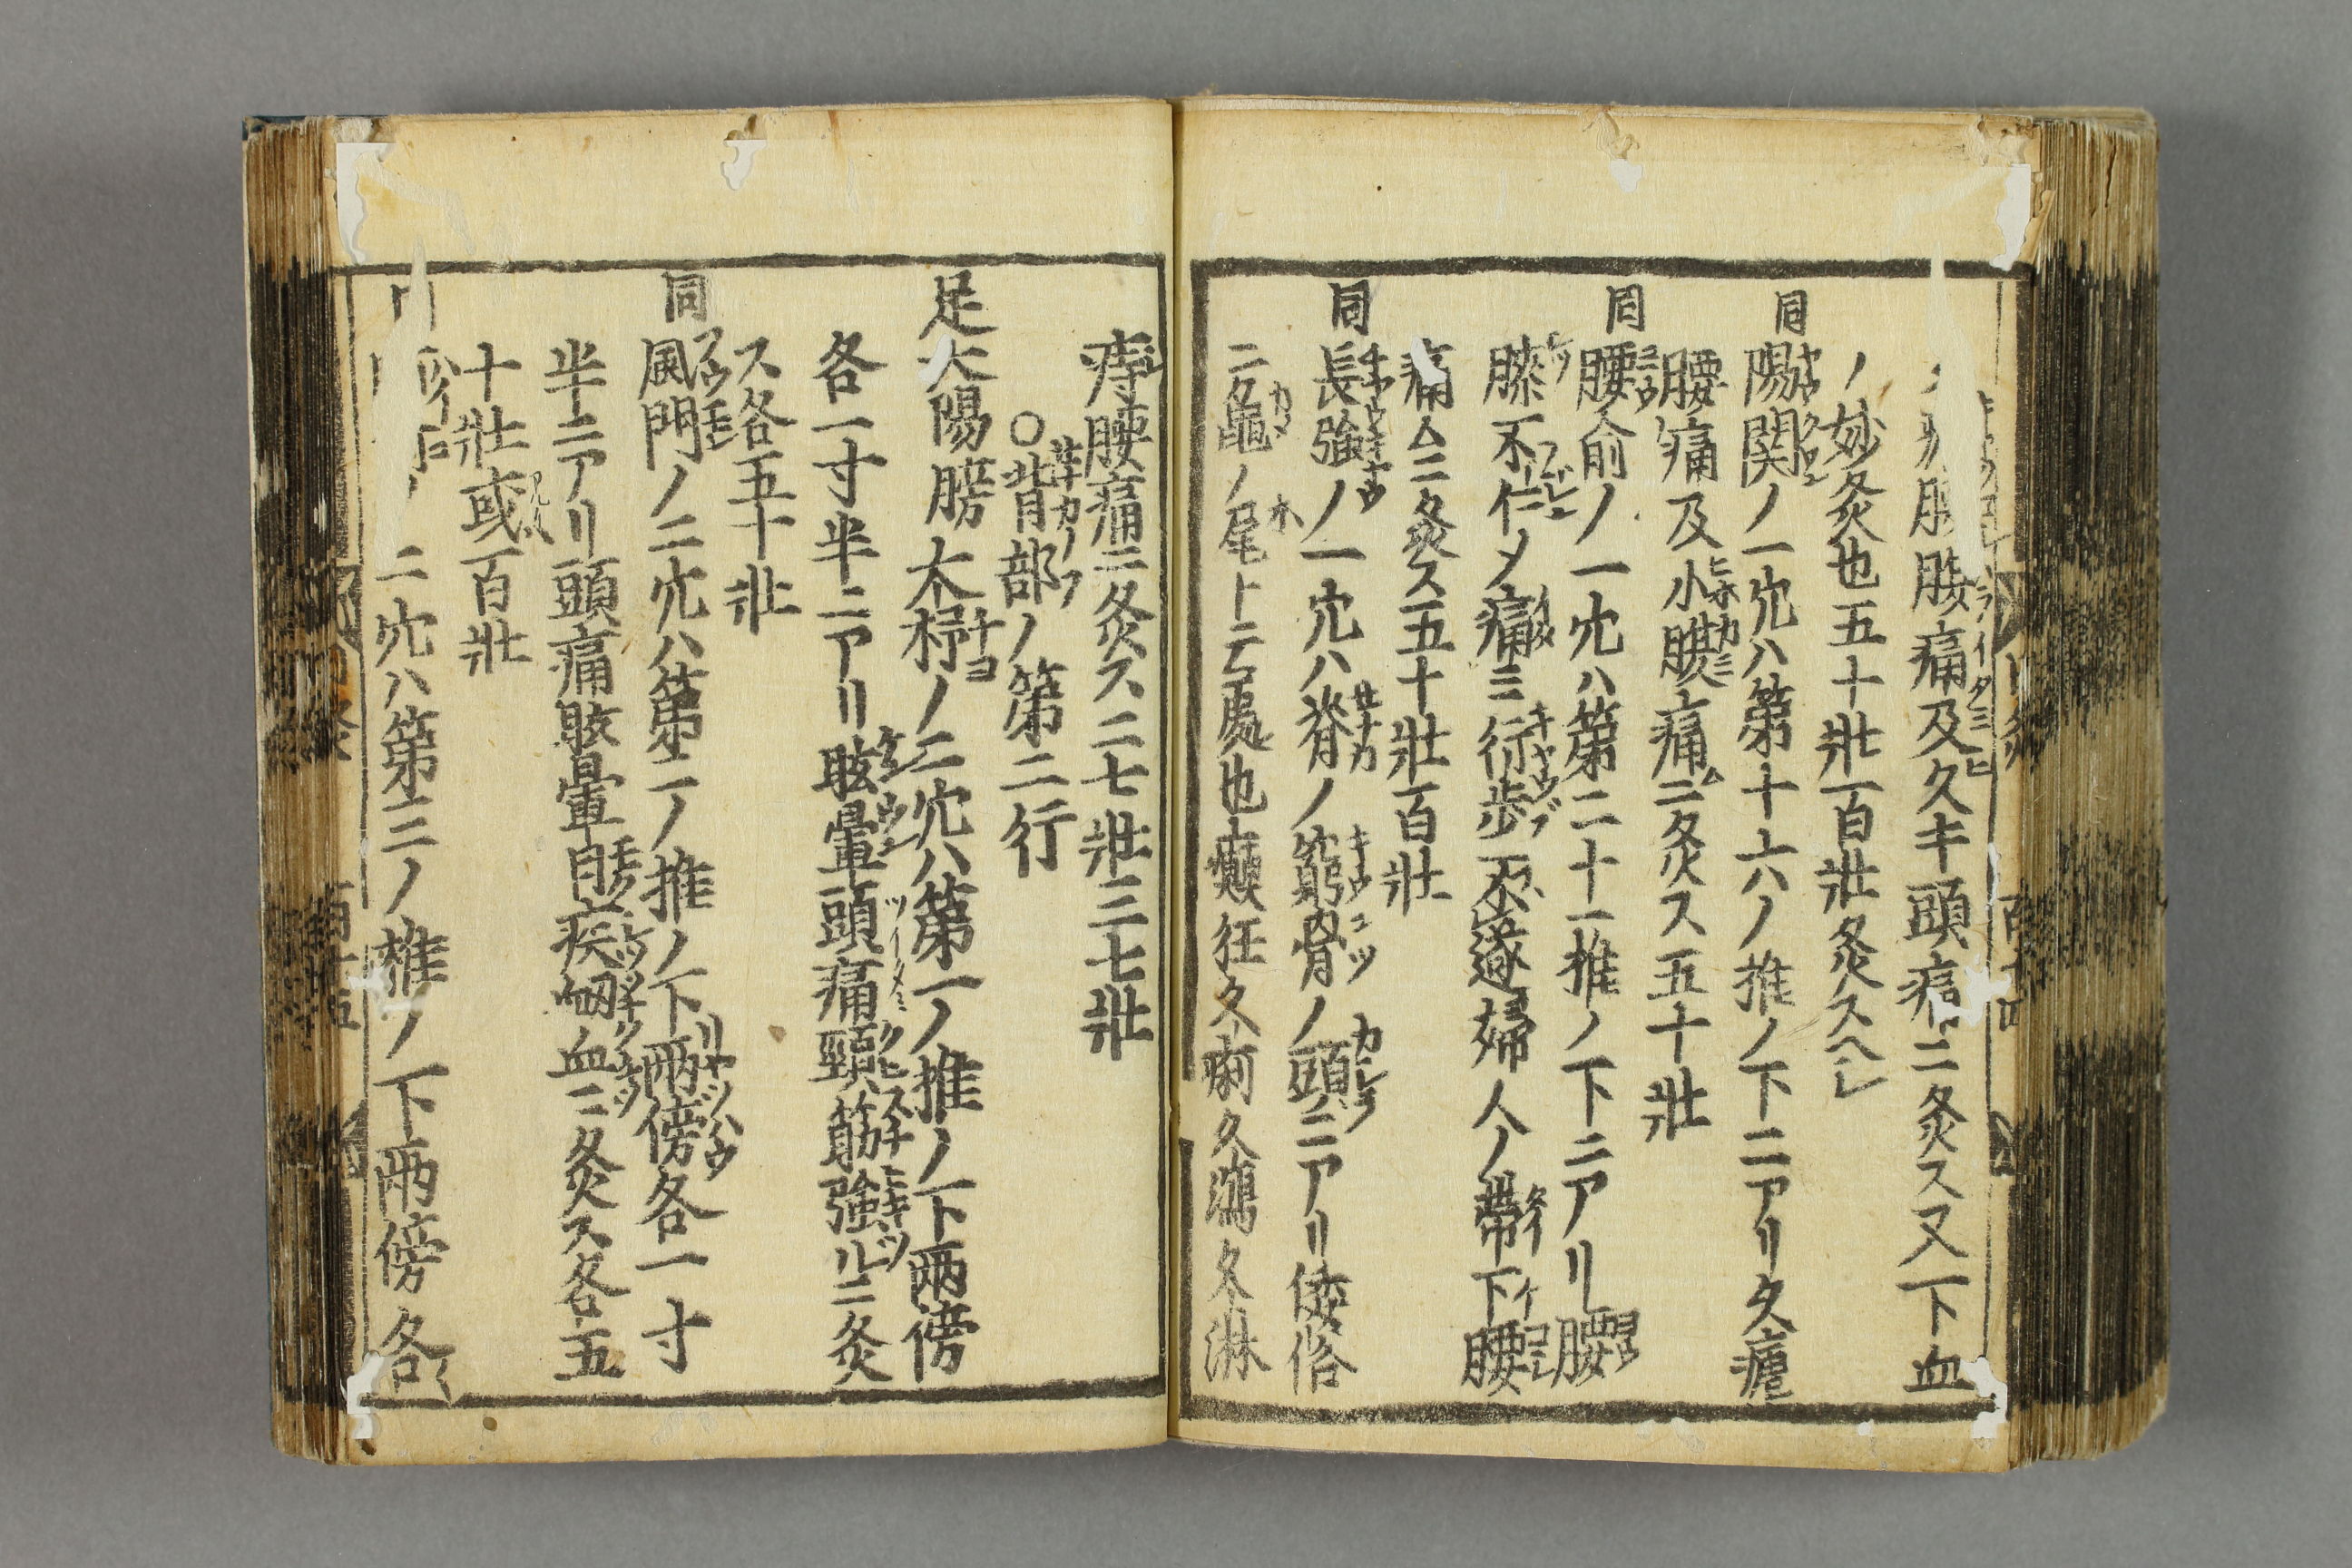 腰痛及久キ頭痛ニ灸ス又下血
ノ妙灸也五十壯一百壯灸スヘシ
同 陽関ノ一穴ハ第十六ノ推ノ下ニアリ久瘧
腰痛及小腰痛ニ灸ス五十壯
同 腰俞ノ一穴ハ第二十一推ノ下ニアリ腰
膝不仁メ痛ミ行歩不遂婦人ノ帯下腰
痛ムニ灸ス五十壯百壯
同 長強ノ一穴ハ脊ノ窮骨ノ頭ニアリ倭俗
ニ亀ノ尾ト云處也癲狂久痢久瀉久淋
痔腰痛ニ灸ス二七壯三七壯
○背部ノ第二行
足太陽膀 大杼ノ二穴ハ第一ノ推ノ下兩傍
各一寸半ニアリ眩暈頭痛頸筋強ルニ灸
ス各五十壯
同 風門ノ二穴ハ第二ノ推ノ下兩傍各一寸
半ニアリ頭痛眩暈目疾衂血ニ灸ス各五
十壯或一百壯
二穴ハ第三ノ椎ノ下兩傍各